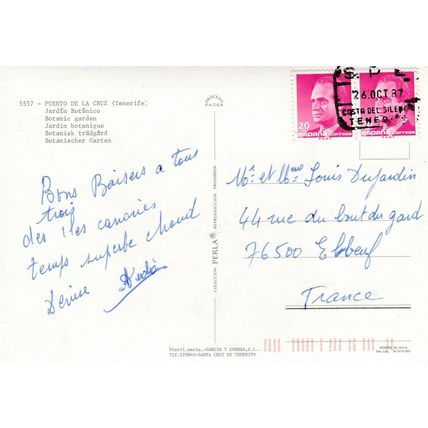 5537 - PUERTO DE LA CRUZ (Tenerife)
Jardín Botánico
Botanic garden
Jardin botanique
Botanisk trädgård
Botanischer Garten
Bons Baisers a tous
trois
des iles canaries
temps superbe chaud
Denise
COLECCION PERLA REPRODUCCION PROHIBIDA
Distri.exclu.:GARCIA Y CORREA,S.L.
Tlf.229840-SANTA CRUZ DE TENERIFE
20
españa correos
españa correos
26.OCT 87
COSTA DEL SILEN
TENER
Mr et Mme Louis Dujardin
44 rue du bout du gard
76500 Elbeuf
France